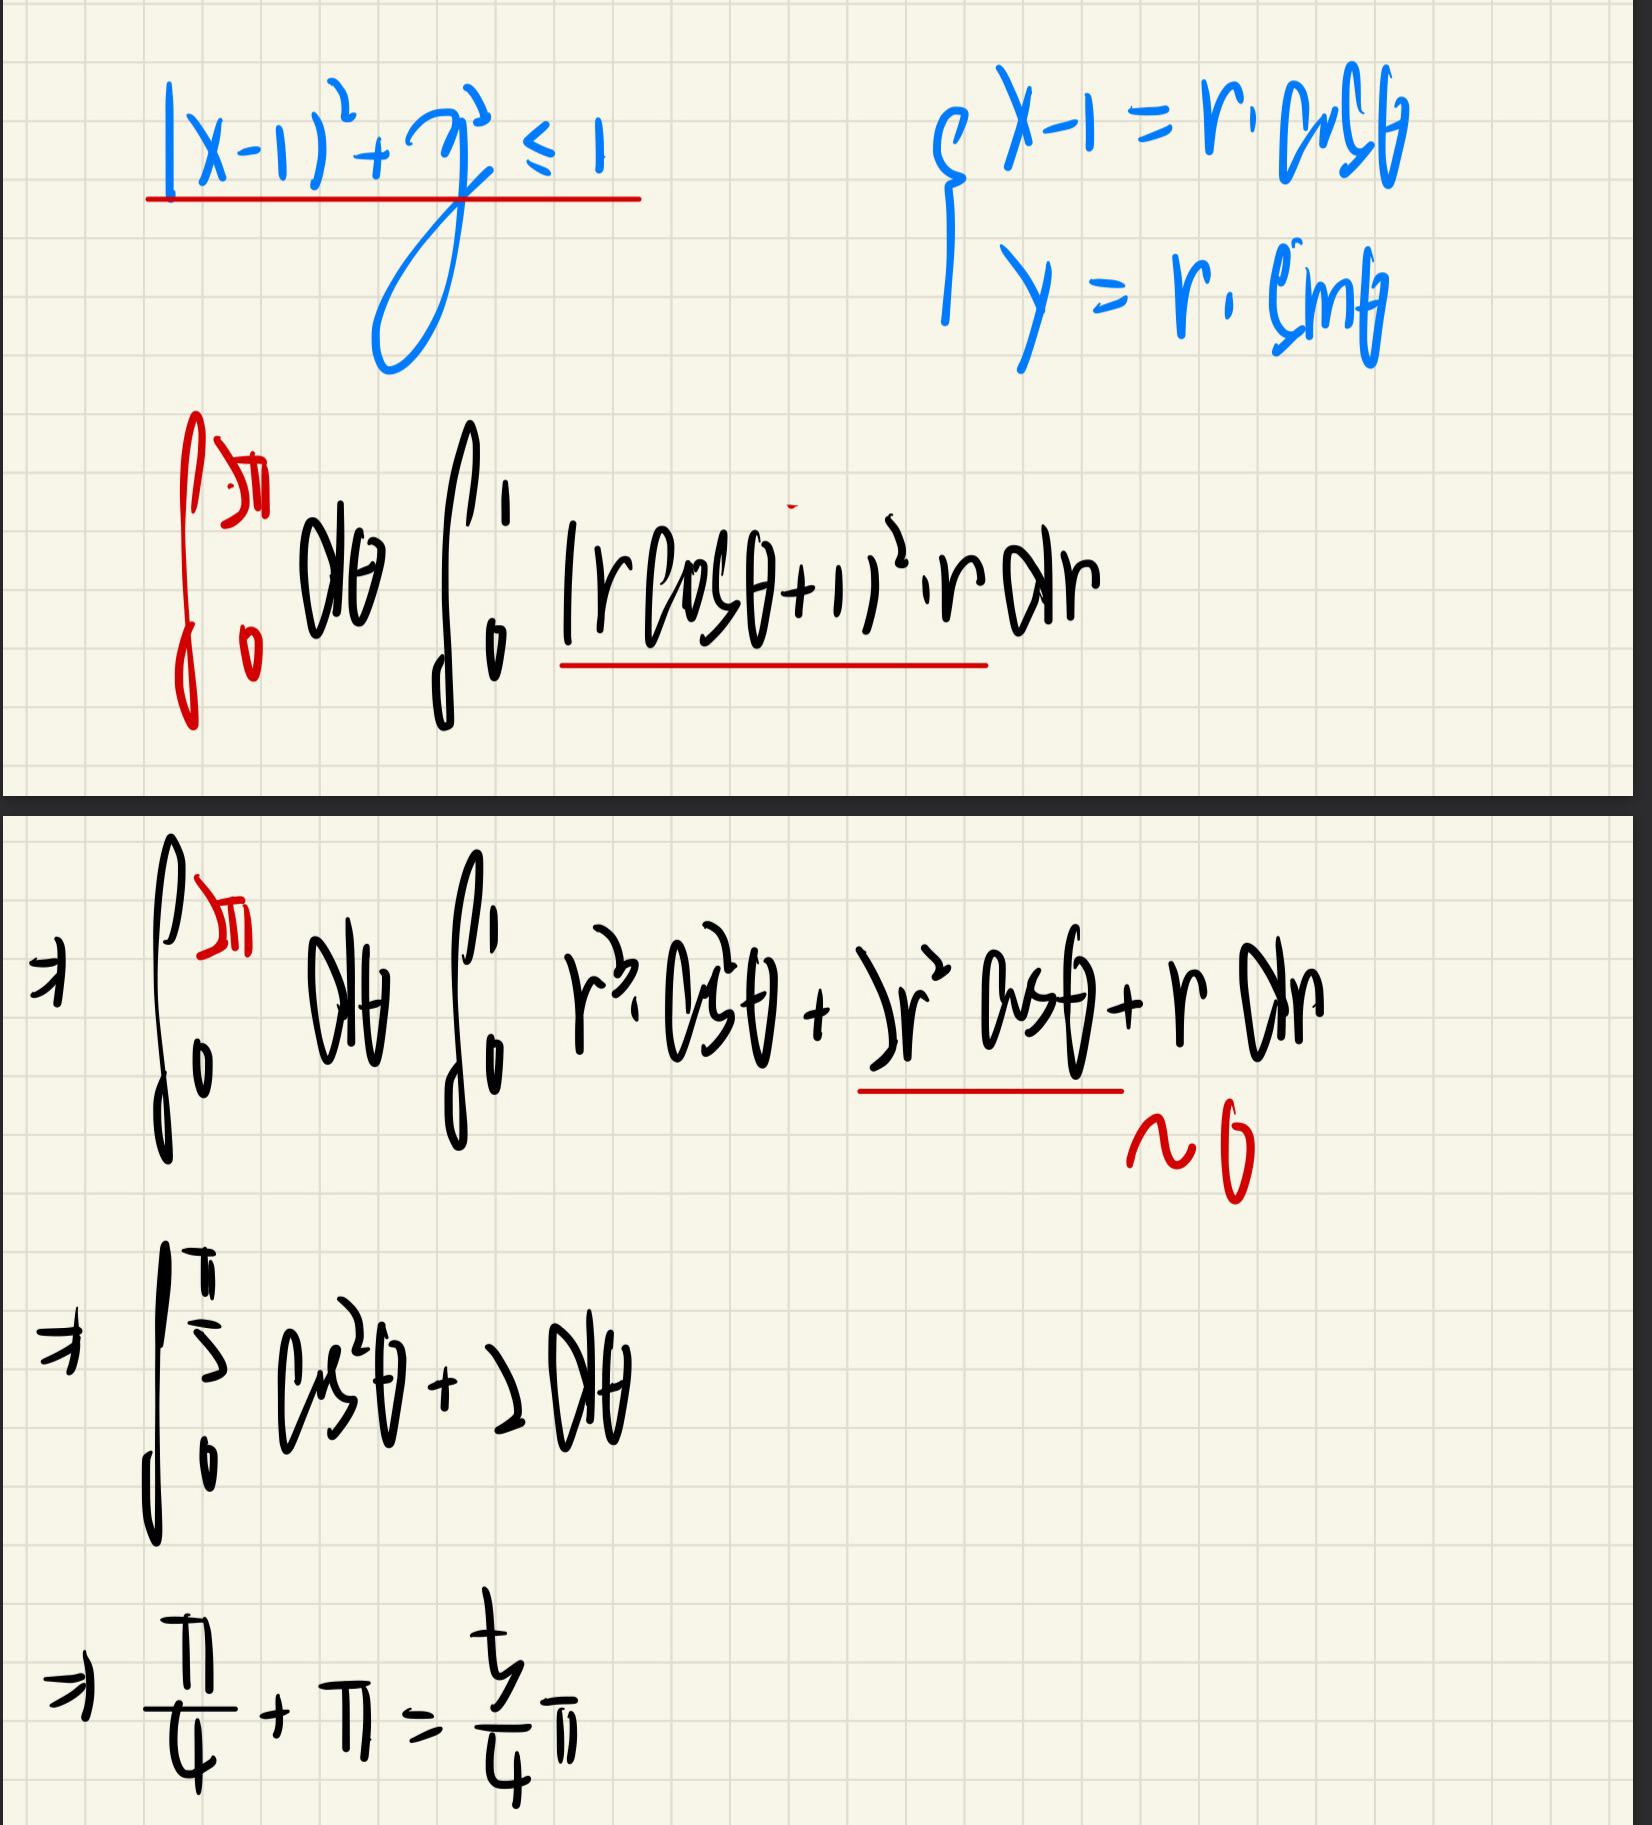 (x-1)²+y²≤1
{ x-1=r·cosθ
y=r·sinθ
∫₀^{2π} dθ ∫₀^1 (rcosθ+1)²·r dr
⇒ ∫₀^{2π} dθ ∫₀^1 r³·cos²θ + 2r²cosθ + r dr
~0
⇒ ∫₀^{π/2} cos²θ + 2 dθ
⇒ π/4 + π = 5/4 π